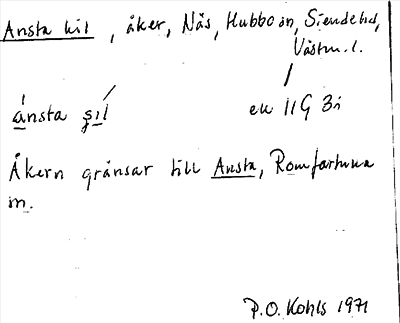 Ansta kil, åker, Näs, Hubbo sn, Siende hd,
Västm. l.
ánsta şıl ek 11G 3i
Åkern gränsar till Ansta, Romfartuna
sn.
P.O. Kohls 1971